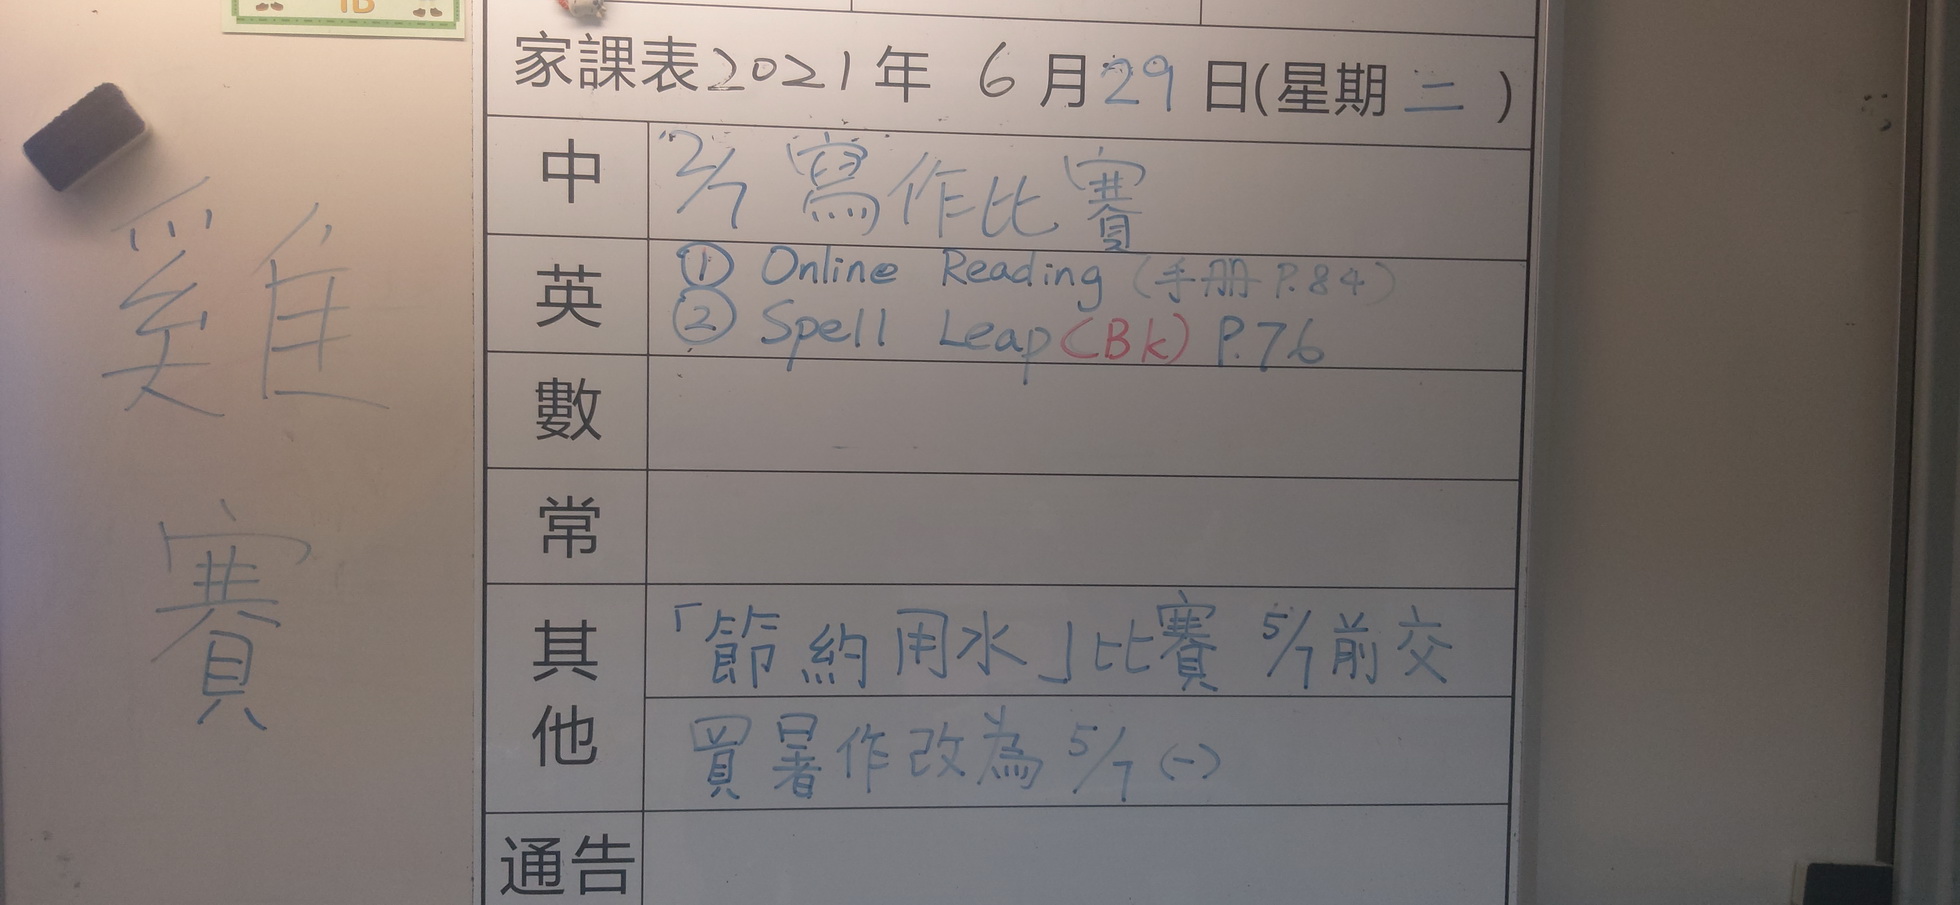 1B
家課表2021年 6月29日(星期二)
中 2/7 寫作比賽
英 ① Online Reading (手册 P.84)
② Spell Leap(Bk) P.76
數
常
其他 「節約用水」比賽 5/7前交
買暑作改為 5/7 (一)
通告
雞
賽